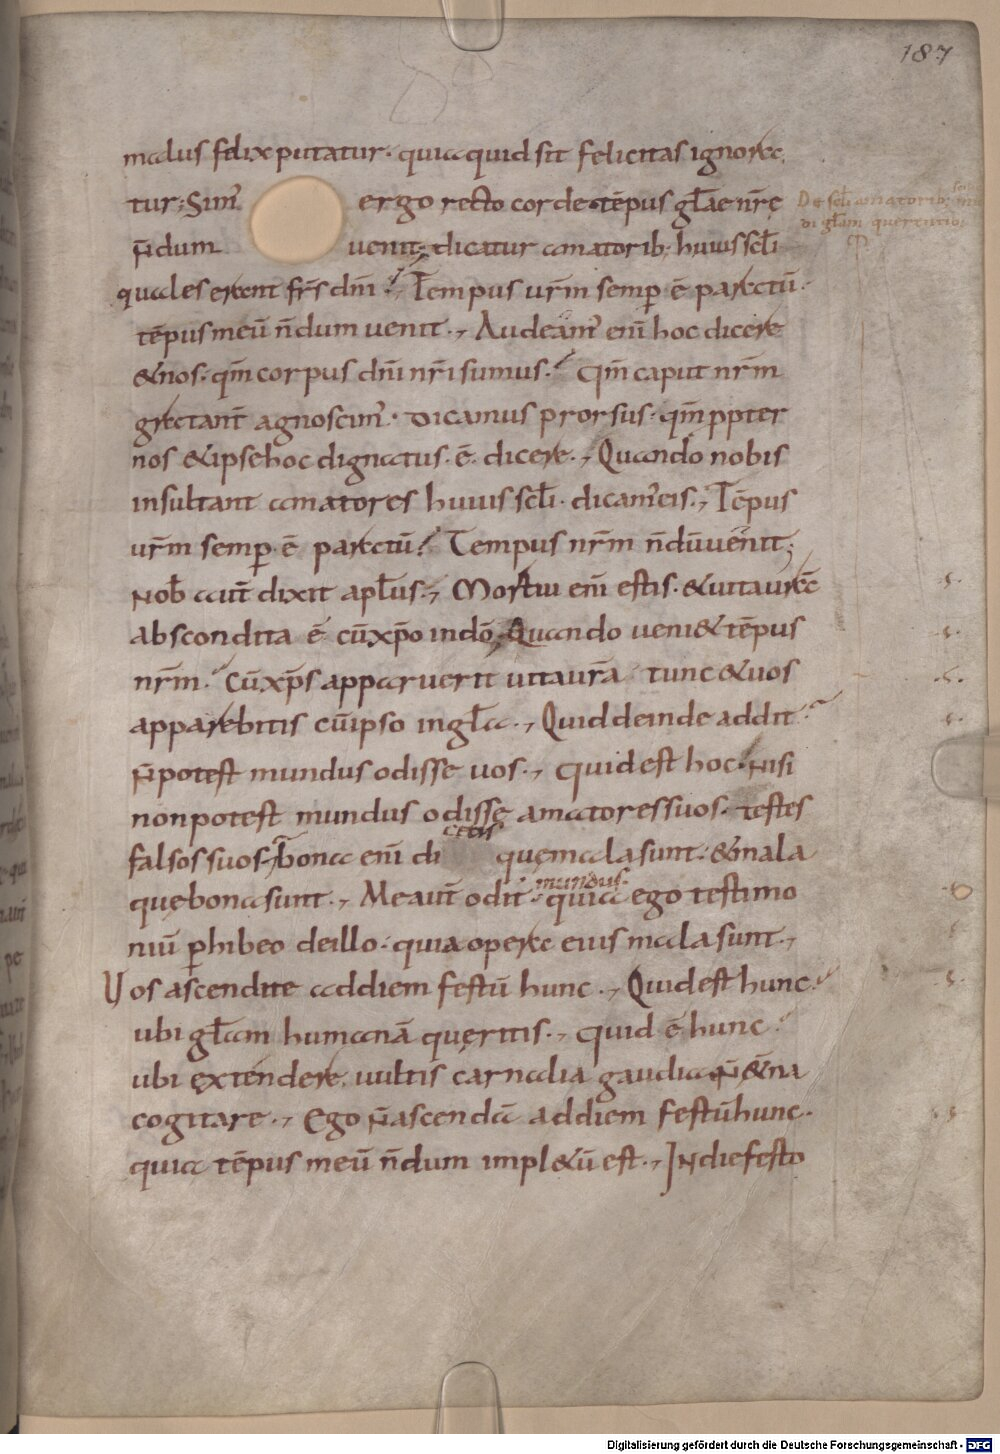 187
malus felix putatur· quia quid sit felicitas ignora
tur; Sim᾽ ergo recto corde· tēpus gl̄ae nr̄ę
n̄dum uenit; dicatur amatorib; huius scl̄i
quales erant fr̄s dn̄i; Tempus ur̄m semp̱ ē paratū·
tēpus meū n̄dum uenit·, Audeam᾽ eni᷄ hoc dicere
&nos· qm̄ corpus dn̄i nr̄i sumus·? Qm̄ caput nr̄m
gratant̄ agnoscim᾽· Dicamus prorsus· qm̄ ppter
nos &ipse hoc dignatus· ē· dicere·, Quando nobis
insultant amatores huius scl̄i· dicam᾽ eis·, Tēpus
ur̄m semp̱· ē paratū? Tempus nr̄m n̄dū uenit;
Nob̄ aut̄ dixit apl̄us·, Mortui eni᷄ estis· &uita ur̄a
abscondita ē cū xp̄o in dō· Quando ueni& tēpus
nr̄m·? Cū xp̄s apparuerit uita ur̄a tunc &uos
apparebitis cū ipso in gl̄a·, Quid deinde addit?
N̄ potest mundus odisse uos·, quid est hoc· nisi
non potest mundus odisse amatores suos· testes
falsos suos· bona eni᷄ di
cetis
quę mala sunt· & mala
quę bona sunt·, Me aut̄ odit· quia ego testimo
mundus·
niū p̱hibeo de illo· quia opera eius mala sunt·,
Uos ascendite ad diem festū hunc·, Quid est hunc?
ubi gl̄am humanā quęritis·, quid ē hunc?
ubi extendere uultis carnalia gaudia n̄ &̄na
cogitare·, Ego n̄ ascendā ad diem festū hunc·
quia tēpus meū n̄dum impl&ū est·, In die festo
Digitalisierung gefördert durch die Deutsche Forschungsgemeinschaft - DFG